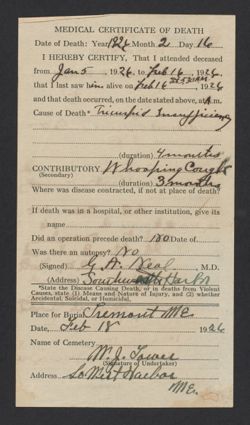 MEDICAL CERTIFICATE OF DEATH
Date of Death: Year 1926 Month 2 Day 16
I HEREBY CERTIFY, That I attended deceased
from Jan 5 1926 to Feb 16 1926
that I last saw him alive on Feb 16 1926
and that death occurred, on the date stated above, at A.m.
Cause of Death* Tricuspid Insufficiency
(duration) 4 months
CONTRIBUTORY Whooping Cough
(Secondary)
(duration) 3 months
Where was disease contracted, if not at place of death?
If death was in a hospital, or other institution, give its
name
Did an operation precede death? no Date of
Was there an autopsy? No
(Signed) G. A. Neal, M.D.
(Address) Southwest Harbor
*State the Disease Causing Death, or in deaths from Violent
Causes, state (1) Means and Nature of Injury, and (2) whether
Accidental, Suicidal, or Homicidal.
Place for Burial Tremont Me.
Date, Feb 18 1926
Name of Cemetery
(Signature of Undertaker)
Address So West Harbor
Me.